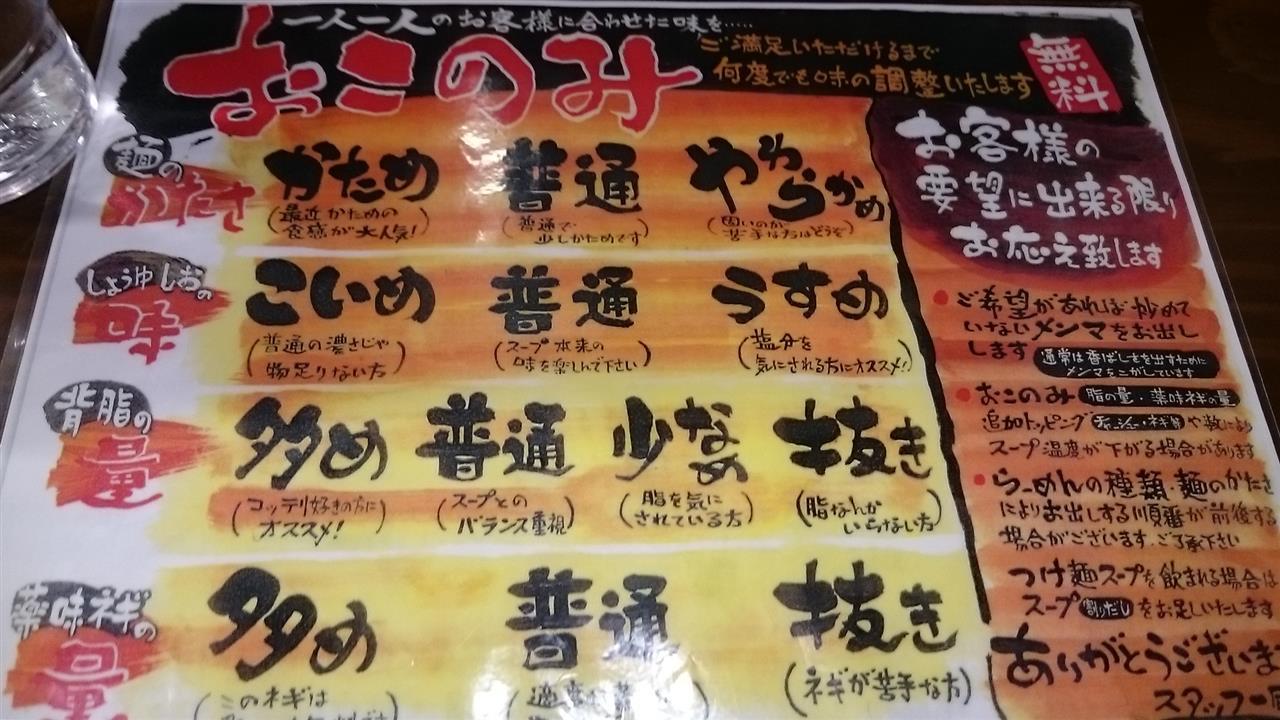 一人一人のお客様に合わせた味を……
おこのみ
ご満足いただけるまで
何度でも味の調整いたします
無料
麺の
かたさ
かため
(最近かための
食感が大人気!)
普通
(普通で
少しかためです)
やわらかめ
(固いのが
苦手な方はどうぞ)
しょうゆしおの
味
こいめ
(普通の濃さじゃ
物足りない方)
普通
(スープ本来の
味を楽しんで下さい)
うすめ
(塩分を
気にされる方にオススメ!)
背脂の
量
多め
(コッテリ好きの方に
オススメ!)
普通
(スープとの
バランス重視)
少なめ
(脂を気に
されている方)
抜き
(脂なんか
いらない方)
薬味ネギの
量
多め
(このネギは
普通
抜き
(ネギが苦手な方)
お客様の
要望に出来る限り
お応え致します
●ご希望があれば炒めて
いないメンマをお出し
します 通常は香ばしさを出すために
メンマをこがしています
●おこのみ 脂の量・薬味ネギの量
追加トッピング チャーシュー・ネギ等 や数により
スープ温度が下がる場合があります
●らーめんの種類・麺のかたさ
によりお出しする順番が前後する
場合がございます。ご了承下さい
つけ麺スープを飲まれる場合は
スープ割りだしをお足しいたします
ありがとうございま
スタッフ一同